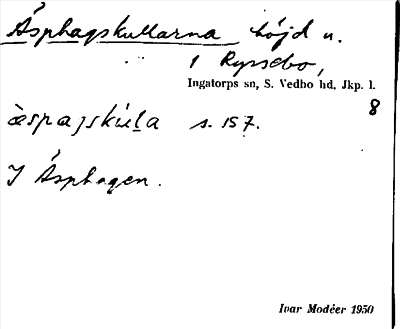 Åsphagskullarna höjd u.
1 Ryssebo,
Ingatorps sn, S. Vedbo hd, Jkp. l.
8
s. 157.
I Åsphagen.
Ivar Modéer 1950